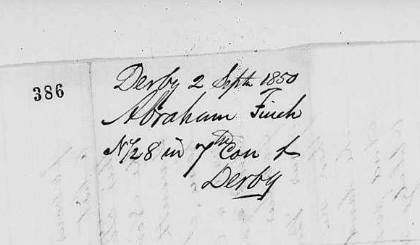 386
Derby 2 Septr 1850
Abraham Finch
N/28 in 7th Con of
Derby